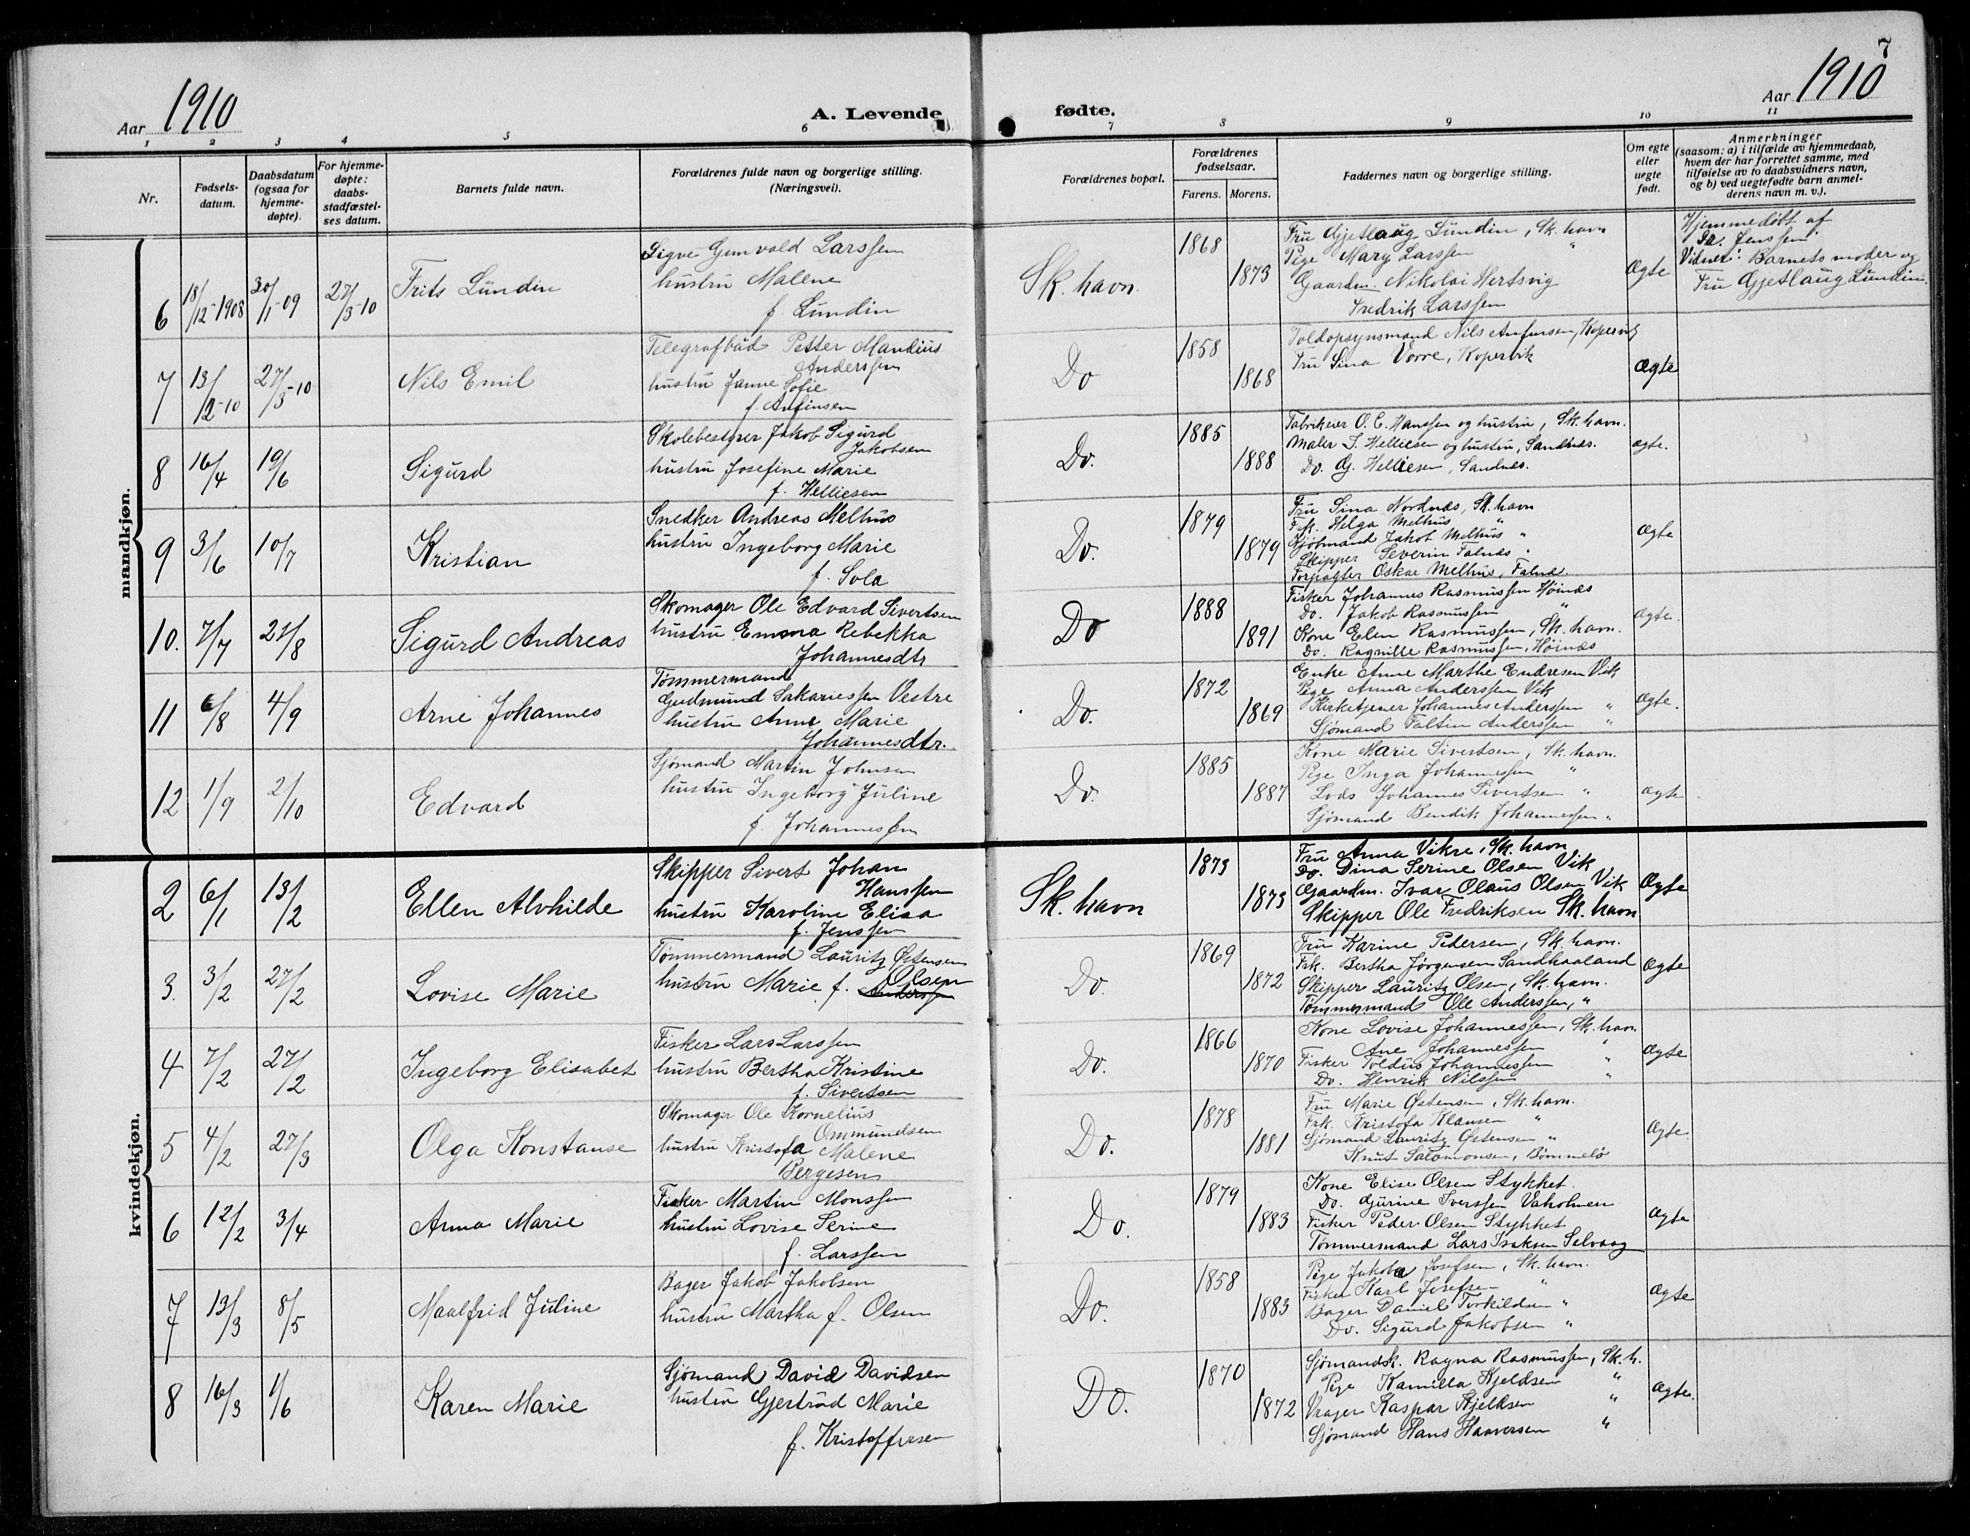 7
Aar 1910
A. Levende fødte.
Aar 1910
1 2 3 4 5 6 7 8 9 10 11
Nr.
Fødsels-
datum.
Daabsdatum
(ogsaa for
hjemme-
døpte).
For hjemme-
døpte:
daabs-
stadfæstel-
ses datum.
Barnets fulde navn.
Forældrenes fulde navn og borgerlige stilling.
(Næringsvei).
Forældrenes bopæl.
Forældrenes
fødselsaar.
Farens. Morens.
Faddernes navn og borgerlige stilling.
Om egte
eller
uegte
født.
Anmerkninger
(saasom: a) i tilfælde av hjemmedaab,
hvem der har forrettet samme, med
tilføielse av to daabsvidners navn,
og b) ved uegtefødte barn anmel-
derens navn m. v.).
mandkjøn.
6 18/12-1908 30/1-09 27/3-10 Frits Lundin
Sigve Gunvald Larssen
hustru Malene
f. Lundin
Sk. havn 1868 1873
Fru Gjetlaug Lundin, Sk. havn
Pige Mary Larssen "
Gaardm. Nikolai Hertsvig
Fredrik Larssen
Ægte
Hjemmedøbt af
Dr. Jenssen.
Vidner: Barnets moder og
Fru Gjetlaug Lundin.
7 13/12-10 27/3-10 Nils Emil
Telegrafbud Petter Mandius
Anderssen
hustru Janne Sofie
f. Anfinsen
Do 1858 1868
Toldopsynsmand Nils Anfinsen, Kopervig
Fru Sina Vorre, Kopervik
Ægte
8 16/4 19/6 Sigurd
Skolebestyrer Jakob Sigurd
Jakobsen
hustru Josefine Marie
f. Helliesen
Do. 1885 1888
Fabrikeier O. E. Hanssen og hustru, Sk. havn.
Maler S. Helliesen og hustru, Sandnes.
Do. G. Helliesen, Sandnes.
ægte.
9 3/6 10/7 Kristian
Snedker Andreas Melhus
hustru Ingeborg Marie
f. Sola
Do. 1879 1879
Fru Sina Nordnæs, Sk. havn
Frk. Helga Melhus "
Sjømand Jakob Melhus "
Skipper Severin Falnæs "
Forpagter Oskar Melhus, Falnæs
Ægte
10. 7/7 21/8 Sigurd Andreas
Skomager Ole Edvard Sivertsen
hustru Emma Rebekka
Johannesdtr
Do 1888 1891
Fisker Johannes Rasmussen Høinæs
Do. Jakob Rasmussen "
Kone Elen Rasmussen, Sk. havn.
Do. Ragnille Rasmussen, Høinæs
Ægte.
11 6/8 4/9 Arne Johannes
Tømmermand
Gudmund Sakariessen Vestre
hustru Anne Marie
Johannesdtr.
Do. 1872 1869
Enke Anne Marthe Endresen Vik
Pige Anna Anderssen Vik
Kirketjener Johannes Anderssen "
Sjømand Faltin Anderssen "
Ægte.
12 1/9 2/10 Edvard
Sjømand Martin Johnsen
hustru Ingeborg Juline
f. Johannessen
Do. 1885 1887
Kone Marie Sivertsen, Sk. havn.
Pige Inga Johannessen "
Lods Johannes Sivertsen "
Sjømand Bendik Johannessen "
Ægte
kvindekjøn.
2 6/1 13/2 Ellen Alvhilde
Skipper Sivert Johan
Hanssen
hustru Karoline Elisa
f. Jenssen
Sk. havn 1873 1873
Fru Anna Vikre, Sk. havn
Do. Dina Serine Olsen Vik
Gaardm. Ivar Olaus Olsen Vik
Skipper Ole Fredriksen Sk. havn
Ægte
3. 3/2 27/2 Lovise Marie
Tømmermand Lauritz Østensen
hustru Marie f. Olsen
Anderssen
Do. 1869 1872
Fru Karine Pedersen, Sk. havn.
Frk. Bertha Jørgensen Sandhaaland
Skipper Lauritz Olsen, Sk. havn.
Tømmermand Ole Anderssen, "
Ægte
4 7/2 27/2 Ingeborg Elisabet
Fisker Lars Larssen
hustru Bertha Kristine
f. Sivertsen
Do. 1866 1870
Kone Lovise Johannessen, Sk. havn
Ane Johannessen "
Fisker Toldus Johannessen "
Do. Henrik Nilssen "
Ægte
5 4/2 27/3 Olga Konstanse
Skomager Ole Kornelius
Ommundsen
hustru Kristofa Malene
Bergesen
Do. 1878 1881
Fru Marie Østensen, Sk. havn.
Frk. Kristofa Klausen "
Sjømand Lauritz Østensen "
Knut Salomonsen, Bømmelø
Ægte
6 12/2 3/4 Anna Marie
Fisker Martin Monssen
hustru Lovise Serine
f. Larssen
Do. 1879 1883
Kone Elise Olsen Stykket.
Do. Gurine Iverssen Vaholmen
Fisker Peder Olsen Stykket
Tømmermand Lars Isaksen Selvaag
Ægte
7 13/3 8/5 Maalfrid Juline
Bager Jakob Jakobsen
hustru Martha f. Olsen
Do. 1858 1883
Pige Jakoba Josefsen, Sk. havn.
Fisker Karl Josefsen "
Bager Daniel Torkildsen "
Do. Sigurd Jakobsen "
Ægte
8 16/3 1/6 Karen Marie
Sjømand David Davidsen
hustru Gjertrud Marie
f. Kristoffersen
Do. 1870 1872
Sjømandsk. Ragna Rasmussen, Sk. h.
Pige Kamilla Kjeldsen "
Vrager Kaspar Kjeldsen "
Sjømand Hans Haaversen "
Ægte.